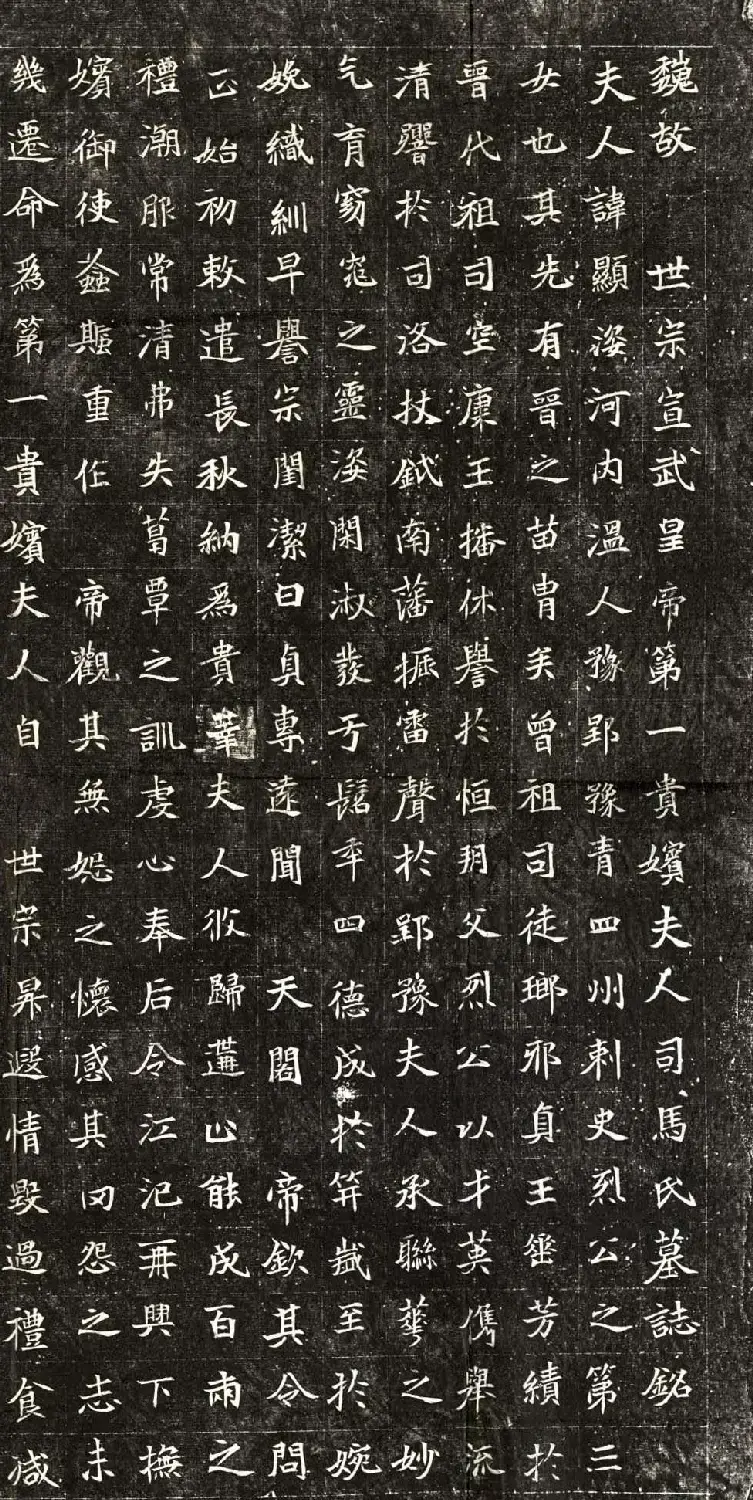 魏故 世宗宣武皇帝第一貴嬪夫人司馬氏墓誌銘
夫人諱顯姿河內溫人豫郢豫青四州刺史烈公之第三
女也其先有晉之苗胄矣曾祖司徒瑯邪貞王垂芳績於
晉代祖司空康王播休譽於恒朔父烈公以才英儁舉流
清響於司洛杖鉞南藩振雷聲於郢豫夫人承聯華之妙
气育窈窕之靈姿閑淑發于髫年四德成於笄歲至於婉
娩織紃早譽宗閨潔白貞專遠聞 天閣 帝欽其令問
正始初敕遣長秋納為貴華夫人攸歸遘止能成百兩之
禮澣服常清弗失葛覃之訓虔心奉后令江汜再興下撫
嬪御使螽斯重作 帝觀其無妬之懷感其罔怨之志未
幾遷命為第一貴嬪夫人自 世宗昇遐情毀過禮食減